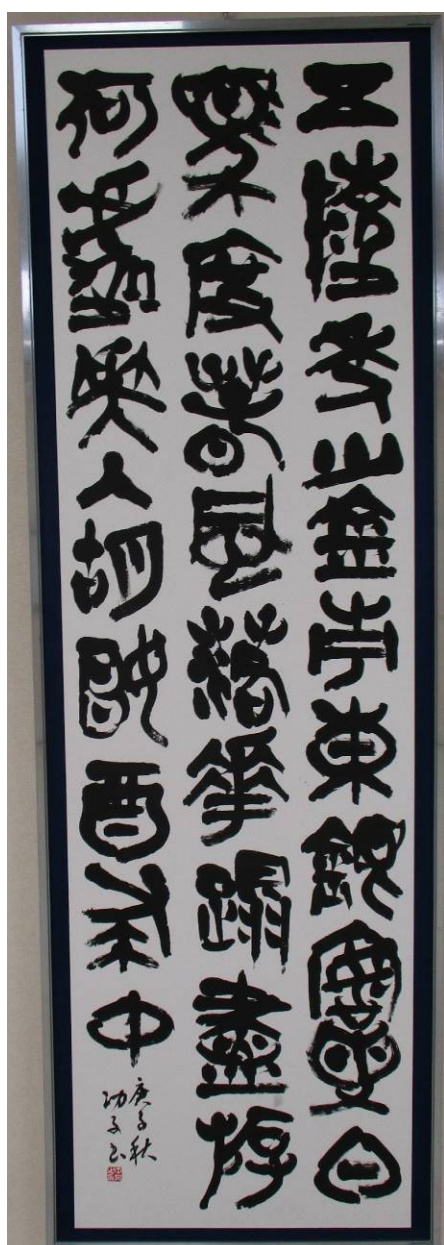 五陵年少金市東銀鞍白
馬度春風落花踏盡遊
何處笑入胡姬酒肆中
庚子秋